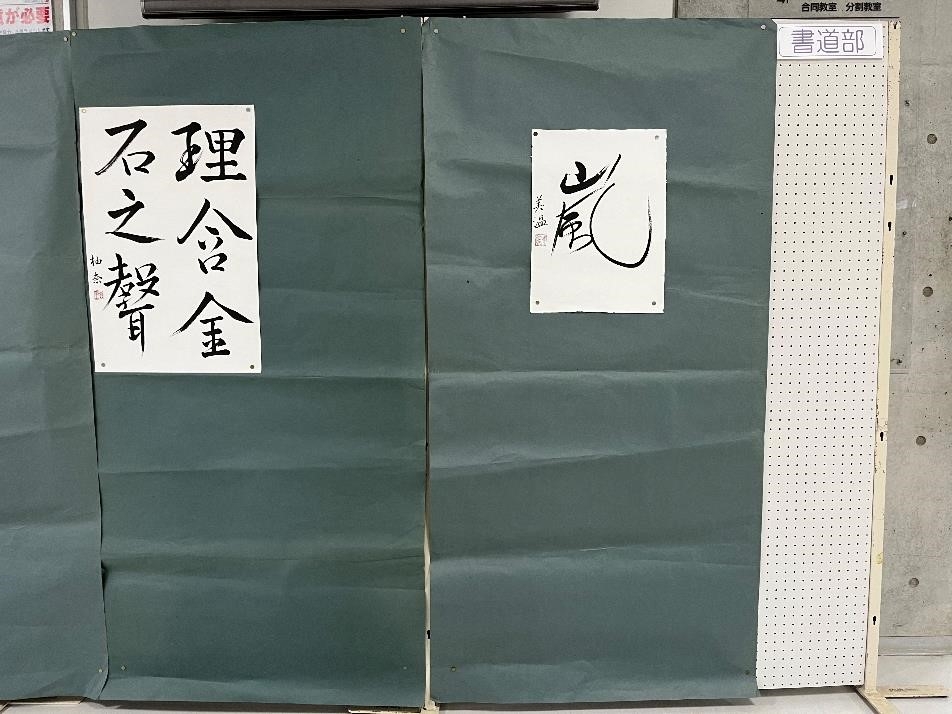 が必要
合同教室 分割教室
書道部
嵐
美温
理含金
石之聲
柚奈